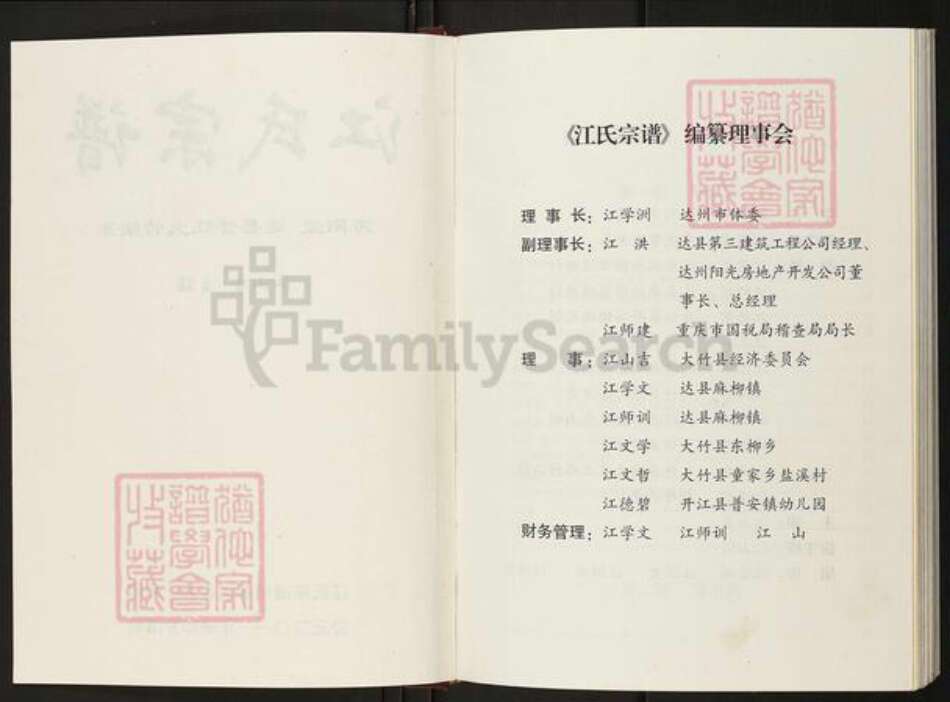 《江氏宗谱》编纂理事会
理事长：江学洲 达州市体委
副理事长：江洪 达县第三建筑工程公司经理、
达州阳光房地产开发公司董
事长、总经理
江师建 重庆市国税局稽查局局长
理事：江山吉 大竹县经济委员会
江学文 达县麻柳镇
江师训 达县麻柳镇
江文学 大竹县东柳乡
江文哲 大竹县童家乡盐溪村
江德碧 开江县普安镇幼儿园
财务管理：江学文 江师训 江山
FamilySearch
江氏宗谱